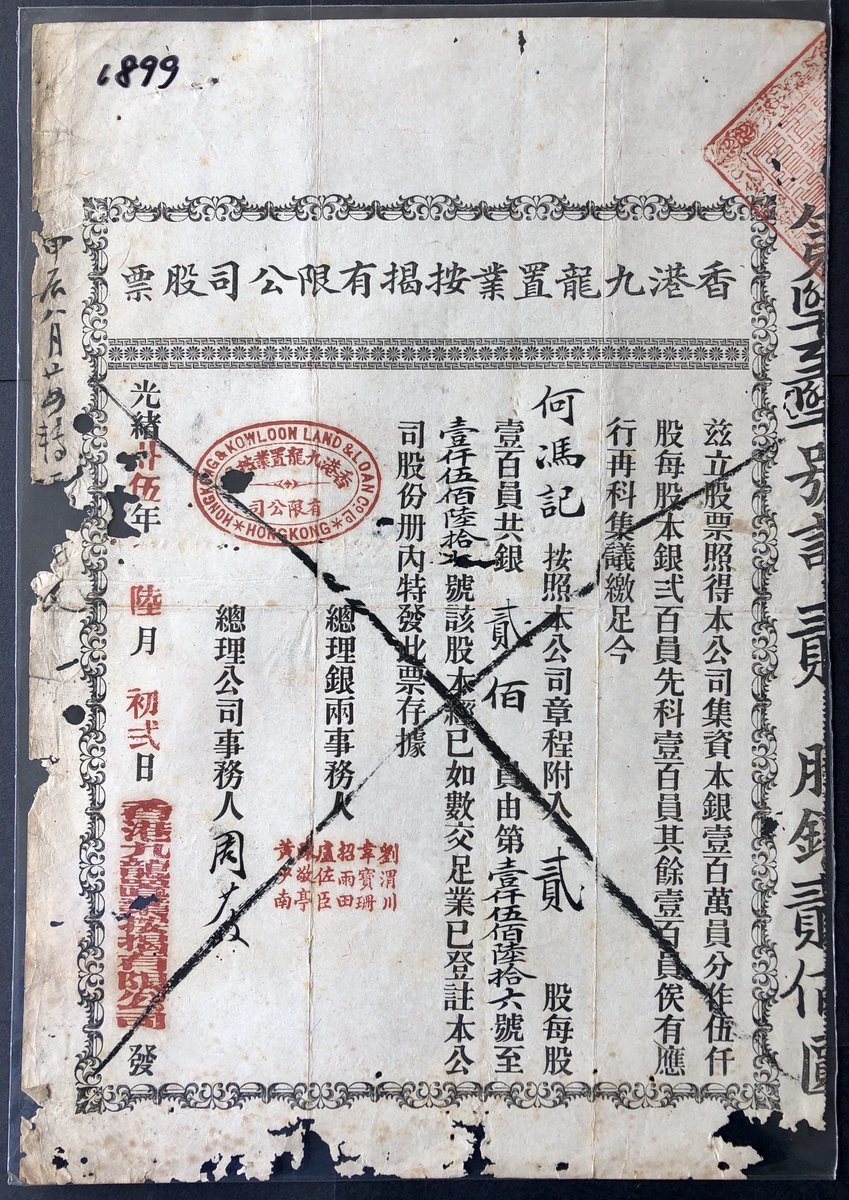 1899
香港九龍置業按揭有限公司股票
號 貳 股銀貳佰圓
茲立股票照得本公司集資本銀壹百萬員分作伍仟
股每股本銀弍百員先科壹百員其餘壹百員俟有應
行再科集議繳足今
何馮記 按照本公司章程附入 貳 股每股
壹百員共銀 貳佰 員由第壹仟伍佰陸拾六號至
壹仟伍佰陸拾七號該股本經已如數交足業已登註本公
司股份册內特發此票存據
總理銀兩事務人
劉渭川
韋寶珊
招雨田
盧佐臣
敬亭
黃 南
總理公司事務人 周
HONGKONG & KOWLOON LAND & LOAN CO LD
香港九龍置業按
有限公司
HONGKONG
光緒卅伍年 陸月 初弍日 香港九龍置業按揭有限公司 發
甲辰八月